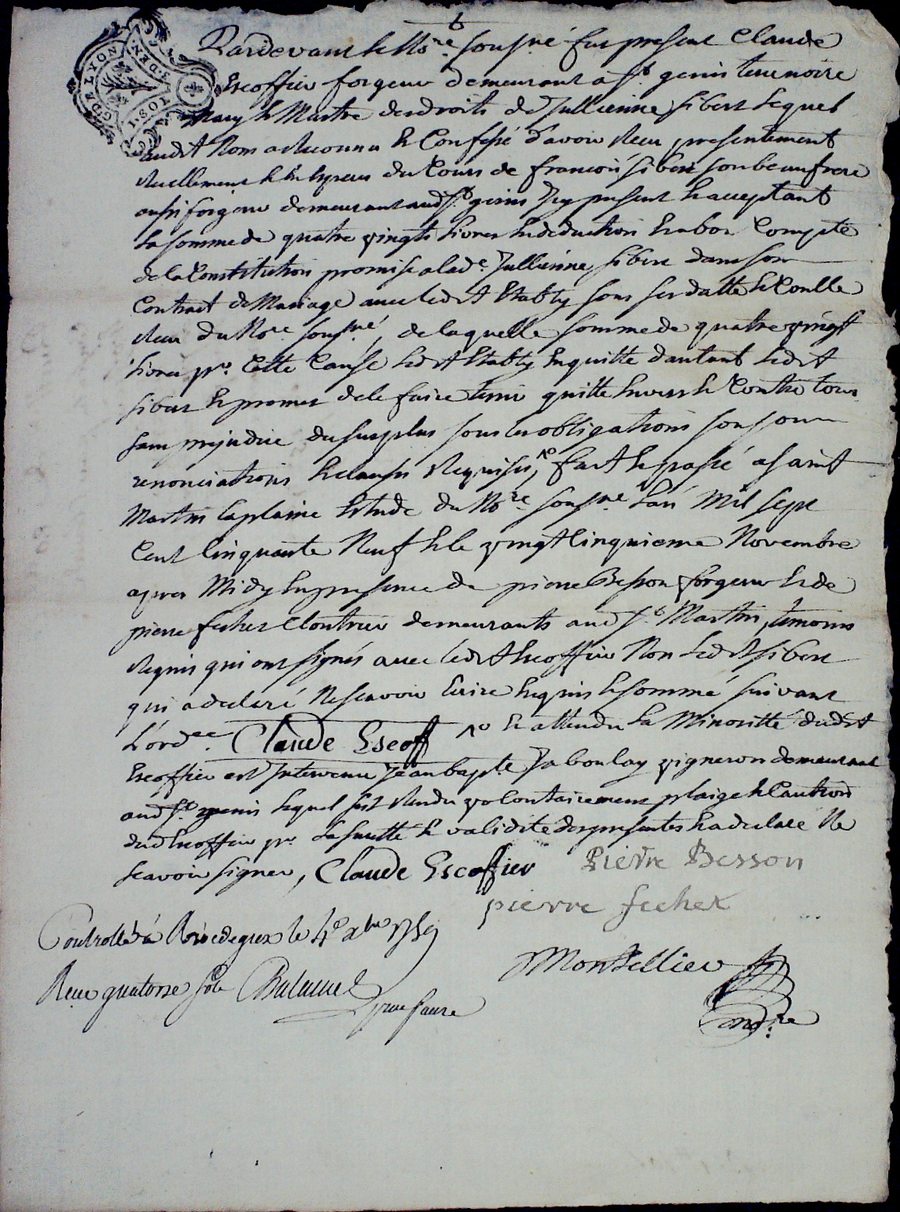 G. DE LYON 2. DEN. 1. SOL
Pardevant le No.re sousné fut present Claude
Escoffier forgeur demeurant a St genis terrenoire
Mary & Maitre des droits de Jullienne sibert lequel
audit Nom a reconnu & Confessé d'avoir reçu presentement
reellement & en especes du Cours de françois sibert son beaufrere
aussi forgeur demeurant aud. St genis Icy present & acceptant
la somme de quatre vingts livres en deduction & a bon Compte
de la Constitution promise a lad.e Jullienne sibert dans son
Contract de Mariage avec led.t Estably sous ses datte & Controlle
reçu du No.re sousné, de laquelle somme de quatre vingt
livres pr. Cette Cause led.t Estably en quitte d'autant led.t
sibert & promet de le faire tenir quitte envers & Contre tous
sans prejudice du surplus sous les obligations
renonciations & clauses requises, fait & passé a saint
Martin la plaine Etude du No.re sousné l'an Mil sept
Cent Cinquante Neuf & le vingt Cinquieme Novembre
apres Midy en presence de pierre Besson forgeur & de
pierre fechet Cloutrier demeurants aud. St. Martin, temoins
requis qui ont signés avec led.t Escoffier Non led.t sibert
qui a declaré Ne scavoir Ecrire Enquis & sommé suivant
L'ord.ce Claude Escoff & attendu la Minorité dud.t
Escoffier est Intervenu Jean bapte. Jaboulay vigneron demeurant
aud. St. genis lequel s'est rendu volontairement plaige & Caution
dud. Escoffier pr. la suitte & validité des presentes & a declaré Ne
scavoir signer, Claude Escoffier Pierre Besson
pierre fechet
Controllé à Rivedegiex le 4e xbre 1759
Reçu quatorze sols
Montellier
No.re